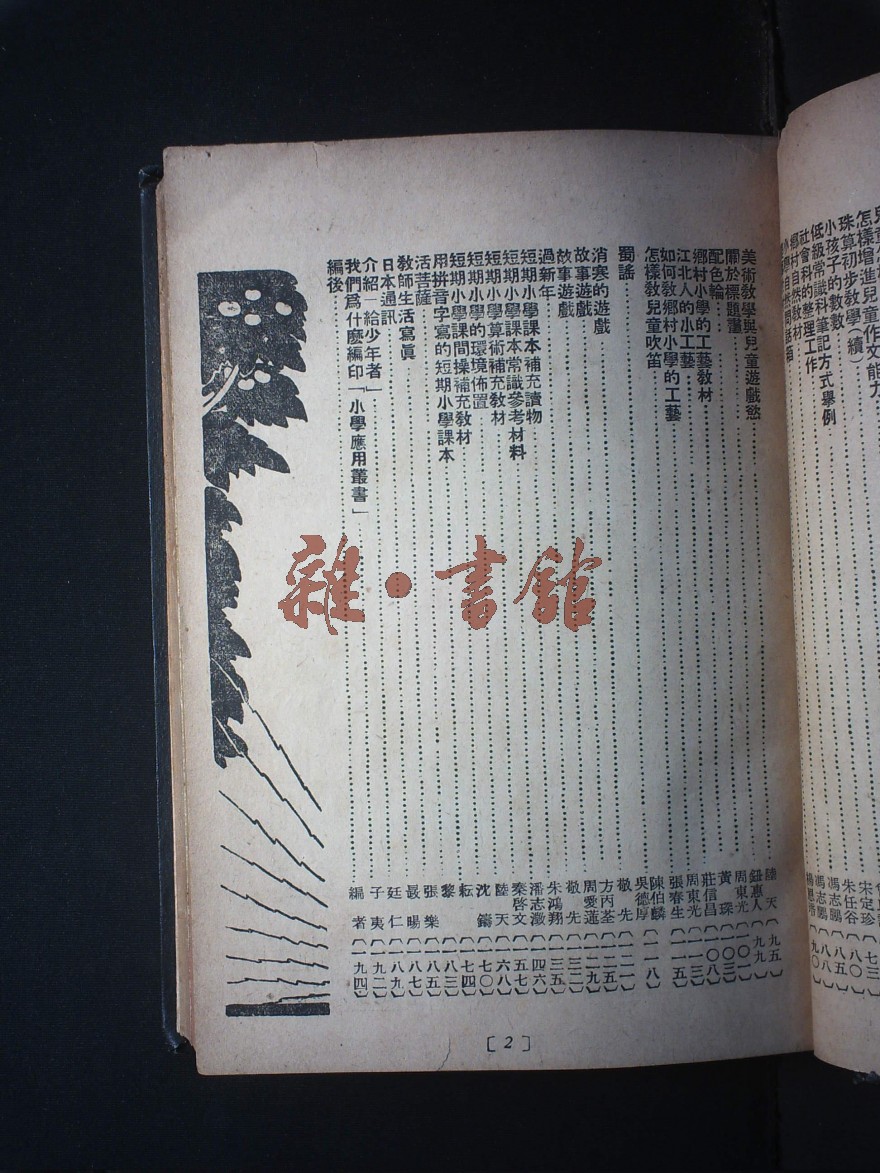 怎樣增進兒童作文能力
珠算初步教學(續)
小孩子的數數
低級常識科筆記方式舉例
社會科的整理工作
鄉村自然教材
宋定珍
朱任谷
馮志鵬
馮志鵬
美術教學與兒童遊戲慾……陸天(九五)
關於標題畫……鈕惠人(九九)
配色輪……周東光(一〇一)
鄉村小學的工藝教材……黃琛(一〇三)
江北人的小工藝……莊信昌(一〇八)
如何教鄉村小學的工藝……周東光(一一三)
怎樣教兒童吹笛……張春生(一一五)
蜀謠……陳伯麟 吳德厚(一一八)
消寒的遊戲……敬先(一二一)
故事遊戲……方丙荃(一二五)
故事遊戲……周愛蓮(一二九)
過新年……敬先(一三二)
短期小學課本補充讀物……朱鴻翔(一三五)
短期小學課本常識參考材料……潘志澂(一四六)
短期小學算術補充教材……秦啓文(一五七)
短期小學的環境佈置……陸天(一六八)
短期小學課間操補充教材……沈鑄(一七〇)
用拼音字寫的短期小學課本……耘(一七四)
活菩薩……黎(一八三)
教師生活寫眞……張樂(一八五)
日本通訊……最暘(一八七)
介紹—給少年者……廷仁(一八九)
我們爲什麼編印「小學應用叢書」……子夷(一九二)
編後……編者(一九四)
[2]
雜·書館